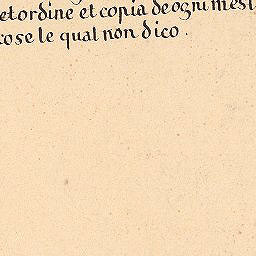 et ordine et copia de ogni mest
cose le qual non dico.